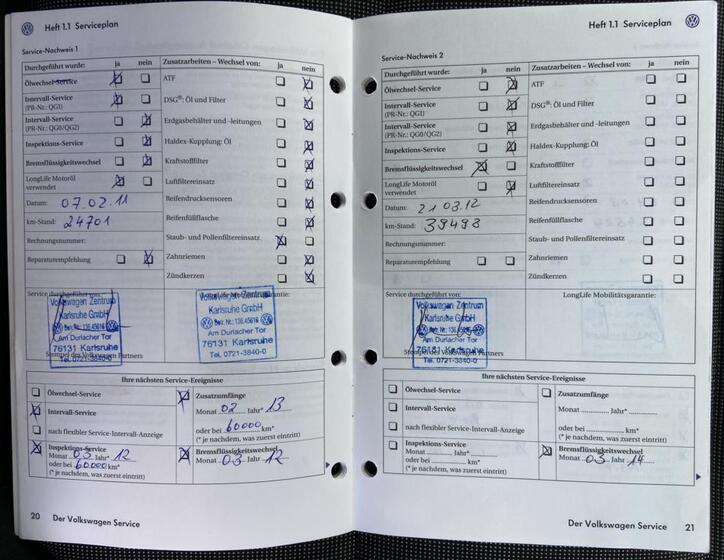 Heft 1.1 Serviceplan
Service-Nachweis 1
Durchgeführt wurde: ja nein
Ölwechsel-Service
Intervall-Service
(PR-Nr.: QG1)
Intervall-Service
(PR-Nr.: QG0/QG2)
Inspektions-Service
Bremsflüssigkeitswechsel
LongLife Motoröl
verwendet
Datum: 07.02.11
km-Stand: 24701
Rechnungsnummer:
Reparaturempfehlung
Zusatzarbeiten – Wechsel von: ja nein
ATF
DSG®: Öl und Filter
Erdgasbehälter und -leitungen
Haldex-Kupplung: Öl
Kraftstofffilter
Luftfiltereinsatz
Reifendrucksensoren
Reifenfüllflasche
Staub- und Pollenfiltereinsatz
Zahnriemen
Zündkerzen
Service durchgeführt von:
Volkswagen Zentrum
Karlsruhe GmbH
Betr. Nr.: 136.45616
Am Durlacher Tor
76131 Karlsruhe
Tel. 0721-3840-0
Stempel des Volkswagen Partners
Volkswagen Zentrum
Karlsruhe GmbH
Betr. Nr.: 136.45616
Am Durlacher Tor
76131 Karlsruhe
Tel. 0721-3840-0
Ihre nächsten Service-Ereignisse
Ölwechsel-Service
Intervall-Service
nach flexibler Service-Intervall-Anzeige
Inspektions-Service
Monat 03 Jahr* 12
oder bei 60000 km*
(* je nachdem, was zuerst eintritt)
Zusatzumfänge
Monat 02 Jahr* 13
oder bei 60000 km*
(* je nachdem, was zuerst eintritt)
Bremsflüssigkeitswechsel
Monat 03 Jahr 12
20 Der Volkswagen Service
Heft 1.1 Serviceplan
Service-Nachweis 2
Durchgeführt wurde: ja nein
Ölwechsel-Service
Intervall-Service
(PR-Nr.: QG1)
Intervall-Service
(PR-Nr.: QG0/QG2)
Inspektions-Service
Bremsflüssigkeitswechsel
LongLife Motoröl
verwendet
Datum: 21 03.12
km-Stand: 39498
Rechnungsnummer:
Reparaturempfehlung
Zusatzarbeiten – Wechsel von: ja nein
ATF
DSG®: Öl und Filter
Erdgasbehälter und -leitungen
Haldex-Kupplung: Öl
Kraftstofffilter
Luftfiltereinsatz
Reifendrucksensoren
Reifenfüllflasche
Staub- und Pollenfiltereinsatz
Zahnriemen
Zündkerzen
Service durchgeführt von:
LongLife Mobilitätsgarantie:
Volkswagen Zentrum
Karlsruhe GmbH
Betr. Nr.: 136.45616
Am Durlacher Tor
76131 Karlsruhe
Tel. 0721-3840-0
Stempel des Volkswagen Partners
Ihre nächsten Service-Ereignisse
Ölwechsel-Service
Intervall-Service
nach flexibler Service-Intervall-Anzeige
Inspektions-Service
Monat Jahr*
oder bei km*
(* je nachdem, was zuerst eintritt)
Zusatzumfänge
Monat Jahr*
oder bei km*
(* je nachdem, was zuerst eintritt)
Bremsflüssigkeitswechsel
Monat 03 Jahr 14
Der Volkswagen Service 21